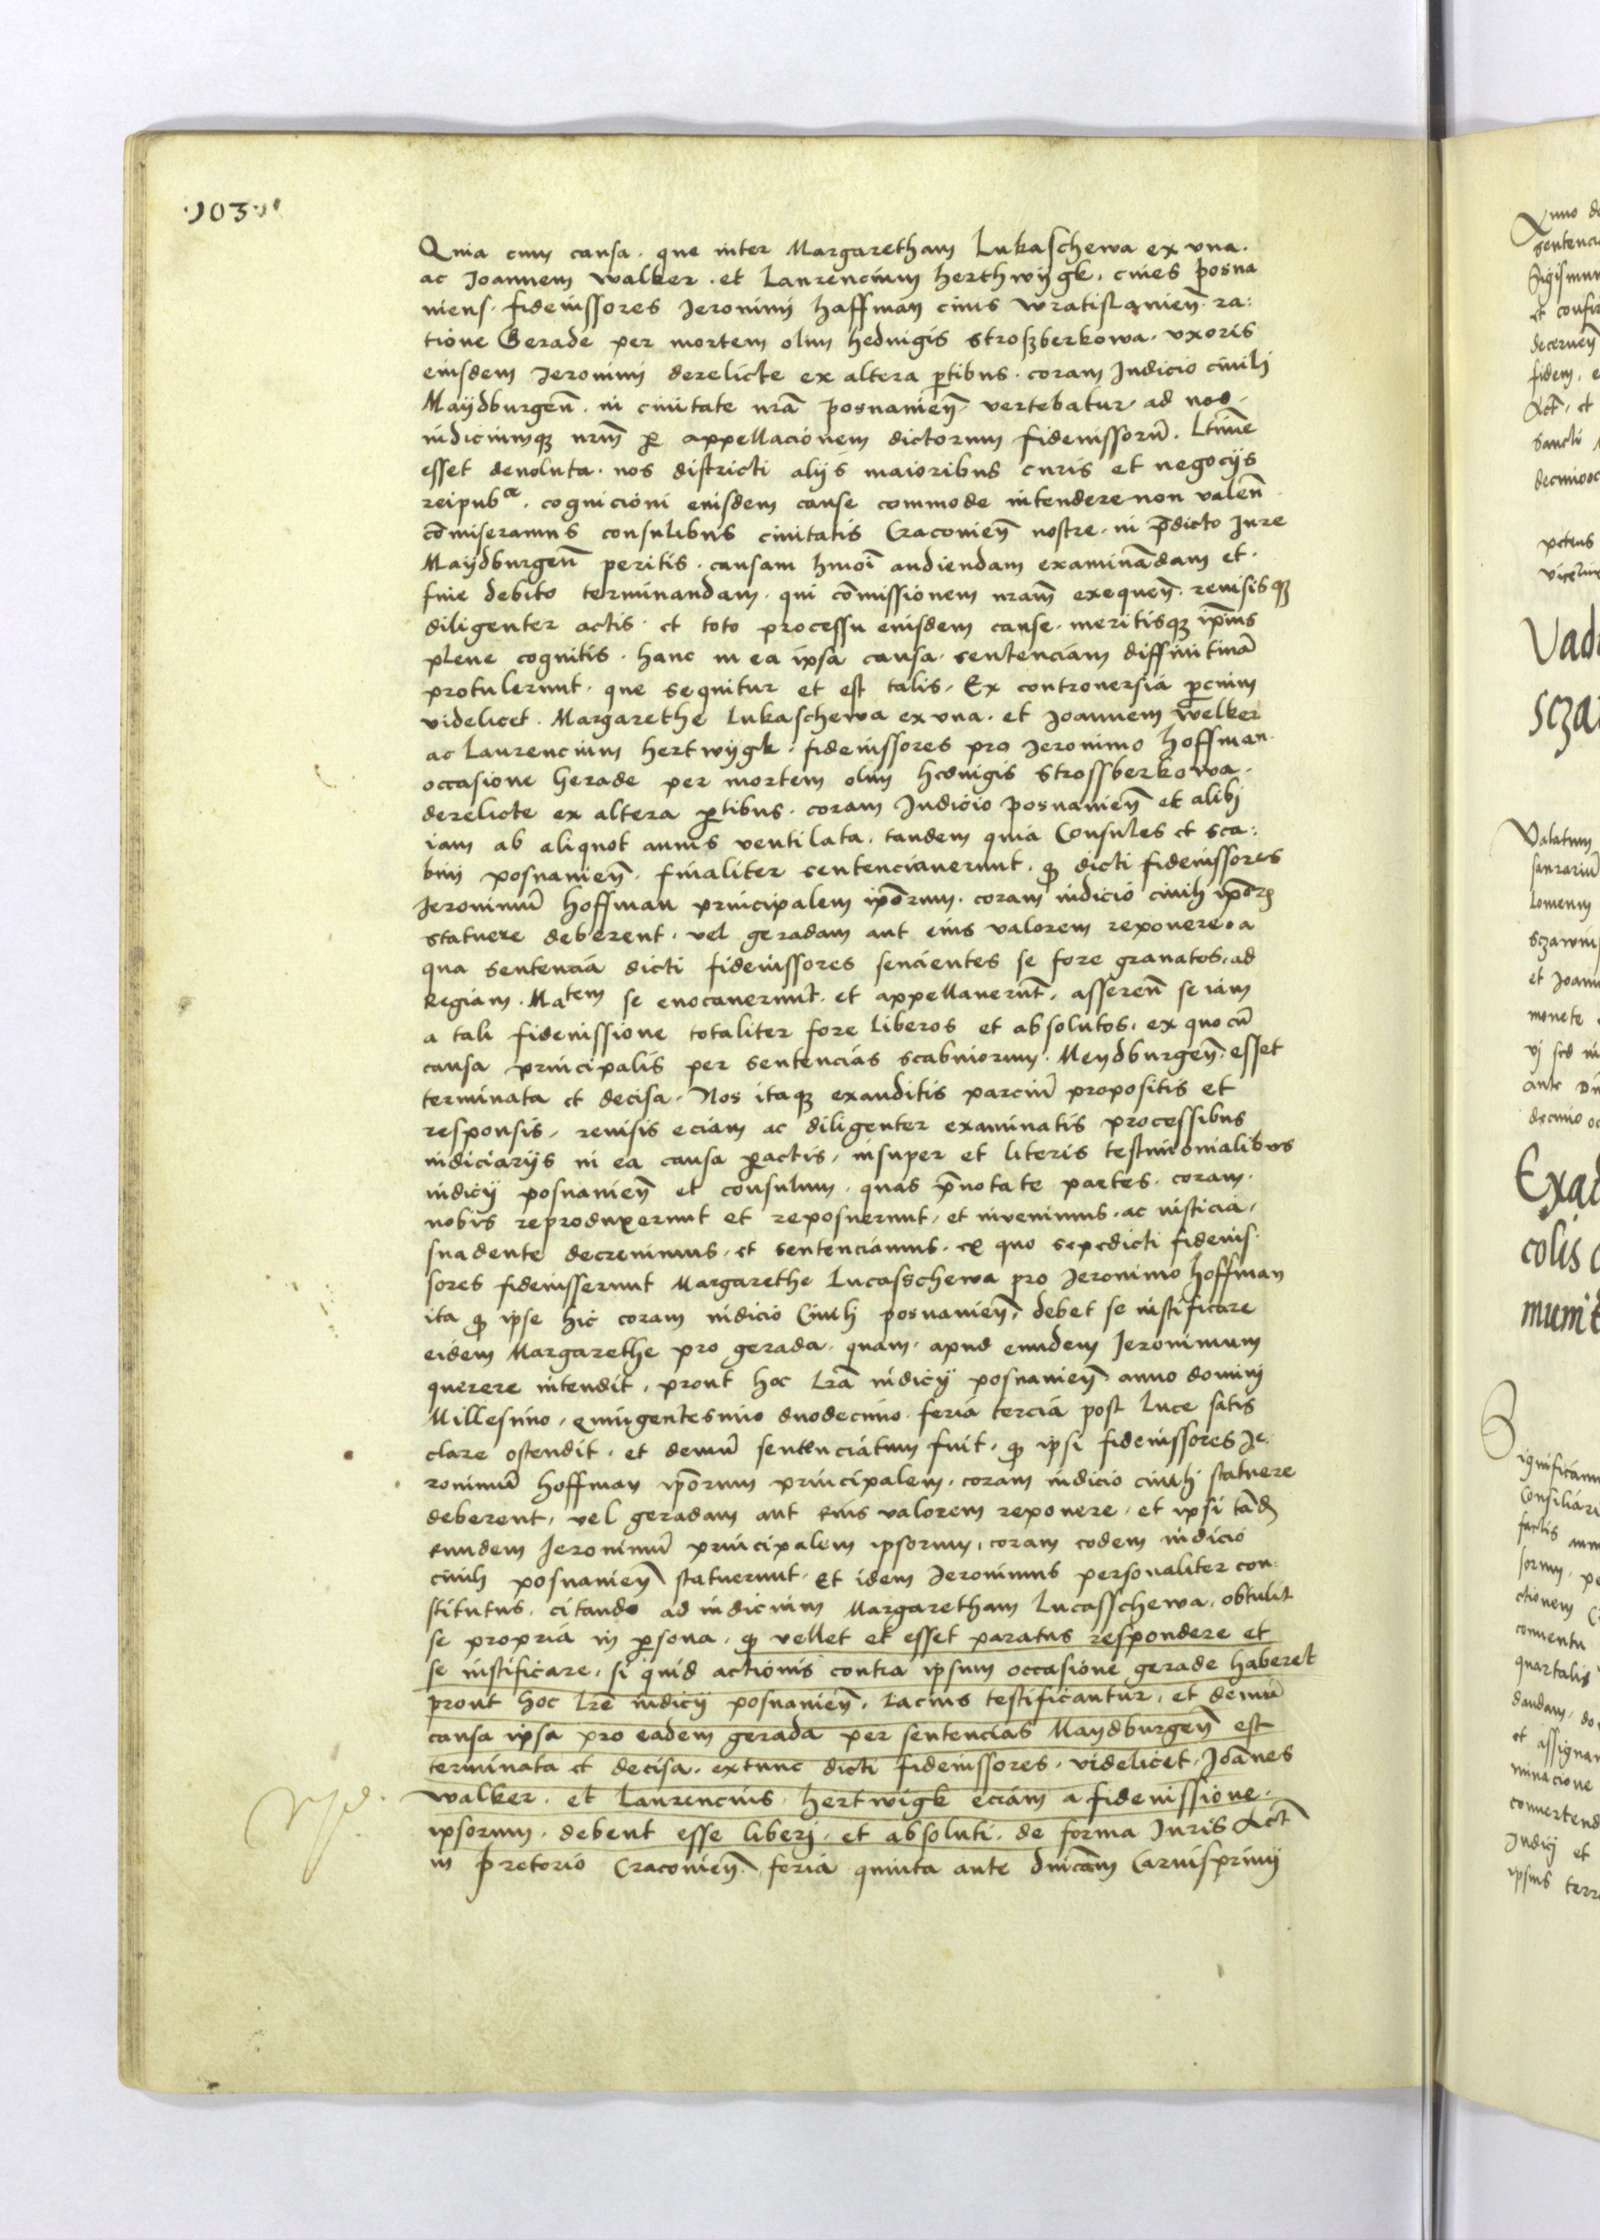 103
Quia cum causa · que inter Margaretham Lukaschewa ex una ·
ac Joannem walker · et Laurencium herthwygk · cives posna
niens · fideiussores Jeronimi haffman civis wratislavieñ · ra:
tione Gerade per mortem olim hedvigis stroszberkowa · uxoris
eiusdem Jeronimi derelicte ex altera ptibus · coram Judicio civili
Maydburgeñ · in civitate nrã posnanieñ · vertebatur · ad nos ·
iudiciumqz nrm̃ p appellacionem dictorum fideiussorũ · Ltime
esset devoluta · nos districti alys maioribus curis et negocys
reipubce · cognicioni eiusdem cause commode intendere non valeñ
cõmiseramus consulibus civitatis Cracovieñ nostre · in p̃dicto Jure
Maydburgeñ peritis · causam hmõi audiendam examinãdam et ·
fine debito terminandam · qui cõmissionem nram̃ exequeñ · revisisqz
diligenter actis · et toto processu eiusdem cause · meritisqz ip̃ius
plene cognitis · hanc in ea ipsa causa · sentenciam diffinitivã
protulerunt · que sequitur et est talis · Ex controversia pcium
videlicet · Margarethe Lukaschewa ex una · et Joannem welker
ac Laurencium hertwygk · fideiussores pro Jeronimo hoffman ·
occasione herade per mortem olim hedvigis strossberkowa ·
derelicte ex altera ptibus · coram Judicio posnanieñ et alibj
iam ab aliquot annis ventilata · tandem quia Consules et sca:
bini posnanieñ · finaliter sentenciaverunt · q dicti fideiussores
Jeronimũ hoffman principalem ipõrum · coram iudicio civilj ipõr
statuere deberent · vel geradam aut eius valorem reponere · a
qua sentencia dicti fideiussores sencientes se fore gravatos · ad
Regiam · Matem se evocaverunt · et appellaverũt · assereñ se iam
a tali fideiussione totaliter fore liberos et absolutos · ex quo cũ
causa principalis per sentencias scabinorum · Meydburgeñ · esset
terminata et decisa · Nos itaqz exauditis parciũ propositis et
responsis · revisis eciam ac diligenter examinatis processibus
iudiciarys in ea causa pactis · insuper et literis testimonialibus
iudicy posnanieñ et consulum · quas p̃notate partes · coram ·
nobis reproduxerunt et reposuerunt · et invenimus · ac iusticia ·
suadente decrevimus · et sentenciamus · ex quo sepedicti fideius ·
sores fideiusserunt Margarethe Lucasschewa pro Jeronimo hoffman
ita q ipse hic coram iudicio Civilj posnanieñ · debet se iustificare
eidem Margarethe pro gerada · quam · apud eundem Jeronimum
querere intendit · prout hoc Lrã iudicy posnanieñ anno dominj
Millesimo · quingentesimo duodecimo feria tercia post Luce satis
clare ostendit · et demũ sentenciatum fuit · q ipsi fideiussores Je:
ronimũ hoffman ipõrum principalem · coram iudicio civilj statuere
deberent · vel geradam aut eius valorem reponere · et ipsi tãd
eundem Jeronimũ principalem ipsorum · coram eodem iudicio
civilj posnanieñ statuerunt · Et idem Jeronimus personaliter con:
stitutus · citando ad iudicium Margaretham Lucasschewa · obtulit
se propria in psona · q vellet et esset paratus respondere et
se iustificare · si quid actionis contra ipsum occasione gerade haberet
prout hoc Lrẽ iudicy posnanieñ · lacius testificantur · et demũ
causa ipsa pro eadem gerada per sentencias Maydburgeñ est
terminata et decisa · extunc dicti fideiussores · videlicet · Joãnes
walker · et Laurencius · hertwigk eciam a fideiussione ·
ipsorum · debent esse liberj · et absoluti · de forma Juris Act̃
in pretorio Cracovieñ · feria quinta ante dnicam̃ Carnisprivy